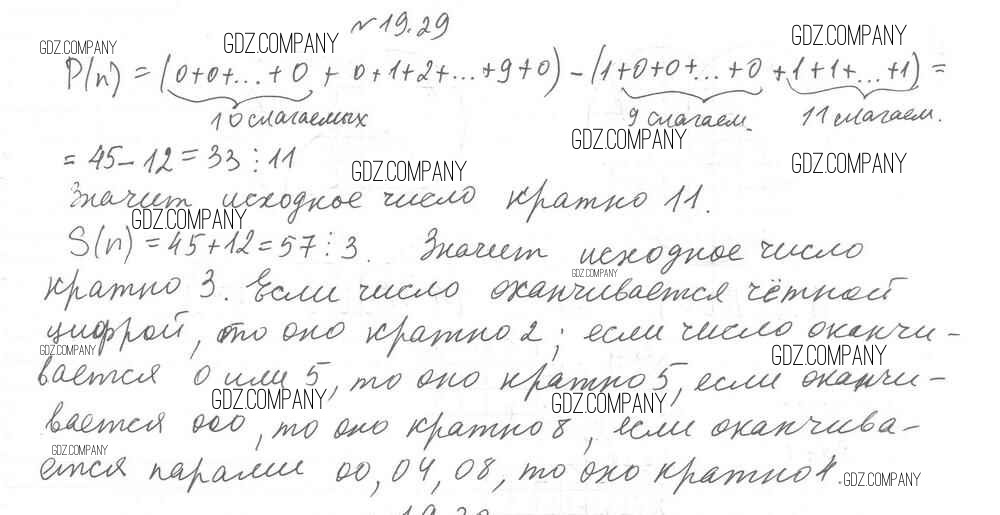 №19.29
P(n) = (0+0+...+0 + 0+1+2+...+9+0) - (1+0+0+...+0 + 1+1+...+1) =
10 слагаемых 9 слагаем. 11 слагаем.
= 45-12 = 33 ⋮ 11
Значит исходное число кратно 11.
S(n) = 45+12 = 57 ⋮ 3. Значит исходное число
кратно 3. Если число оканчивается чётной
цифрой, то оно кратно 2; если число оканчи-
вается 0 или 5, то оно кратно 5, если оканчи-
вается 000, то оно кратно 8, если оканчива-
ется парами 00, 04, 08, то оно кратно 4.
GDZ.COMPANY
GDZ.COMPANY
GDZ.COMPANY
GDZ.COMPANY
GDZ.COMPANY
GDZ.COMPANY
GDZ.COMPANY
GDZ.COMPANY
GDZ.COMPANY
GDZ.COMPANY
GDZ.COMPANY
GDZ.COMPANY
GDZ.COMPANY
GDZ.COMPANY